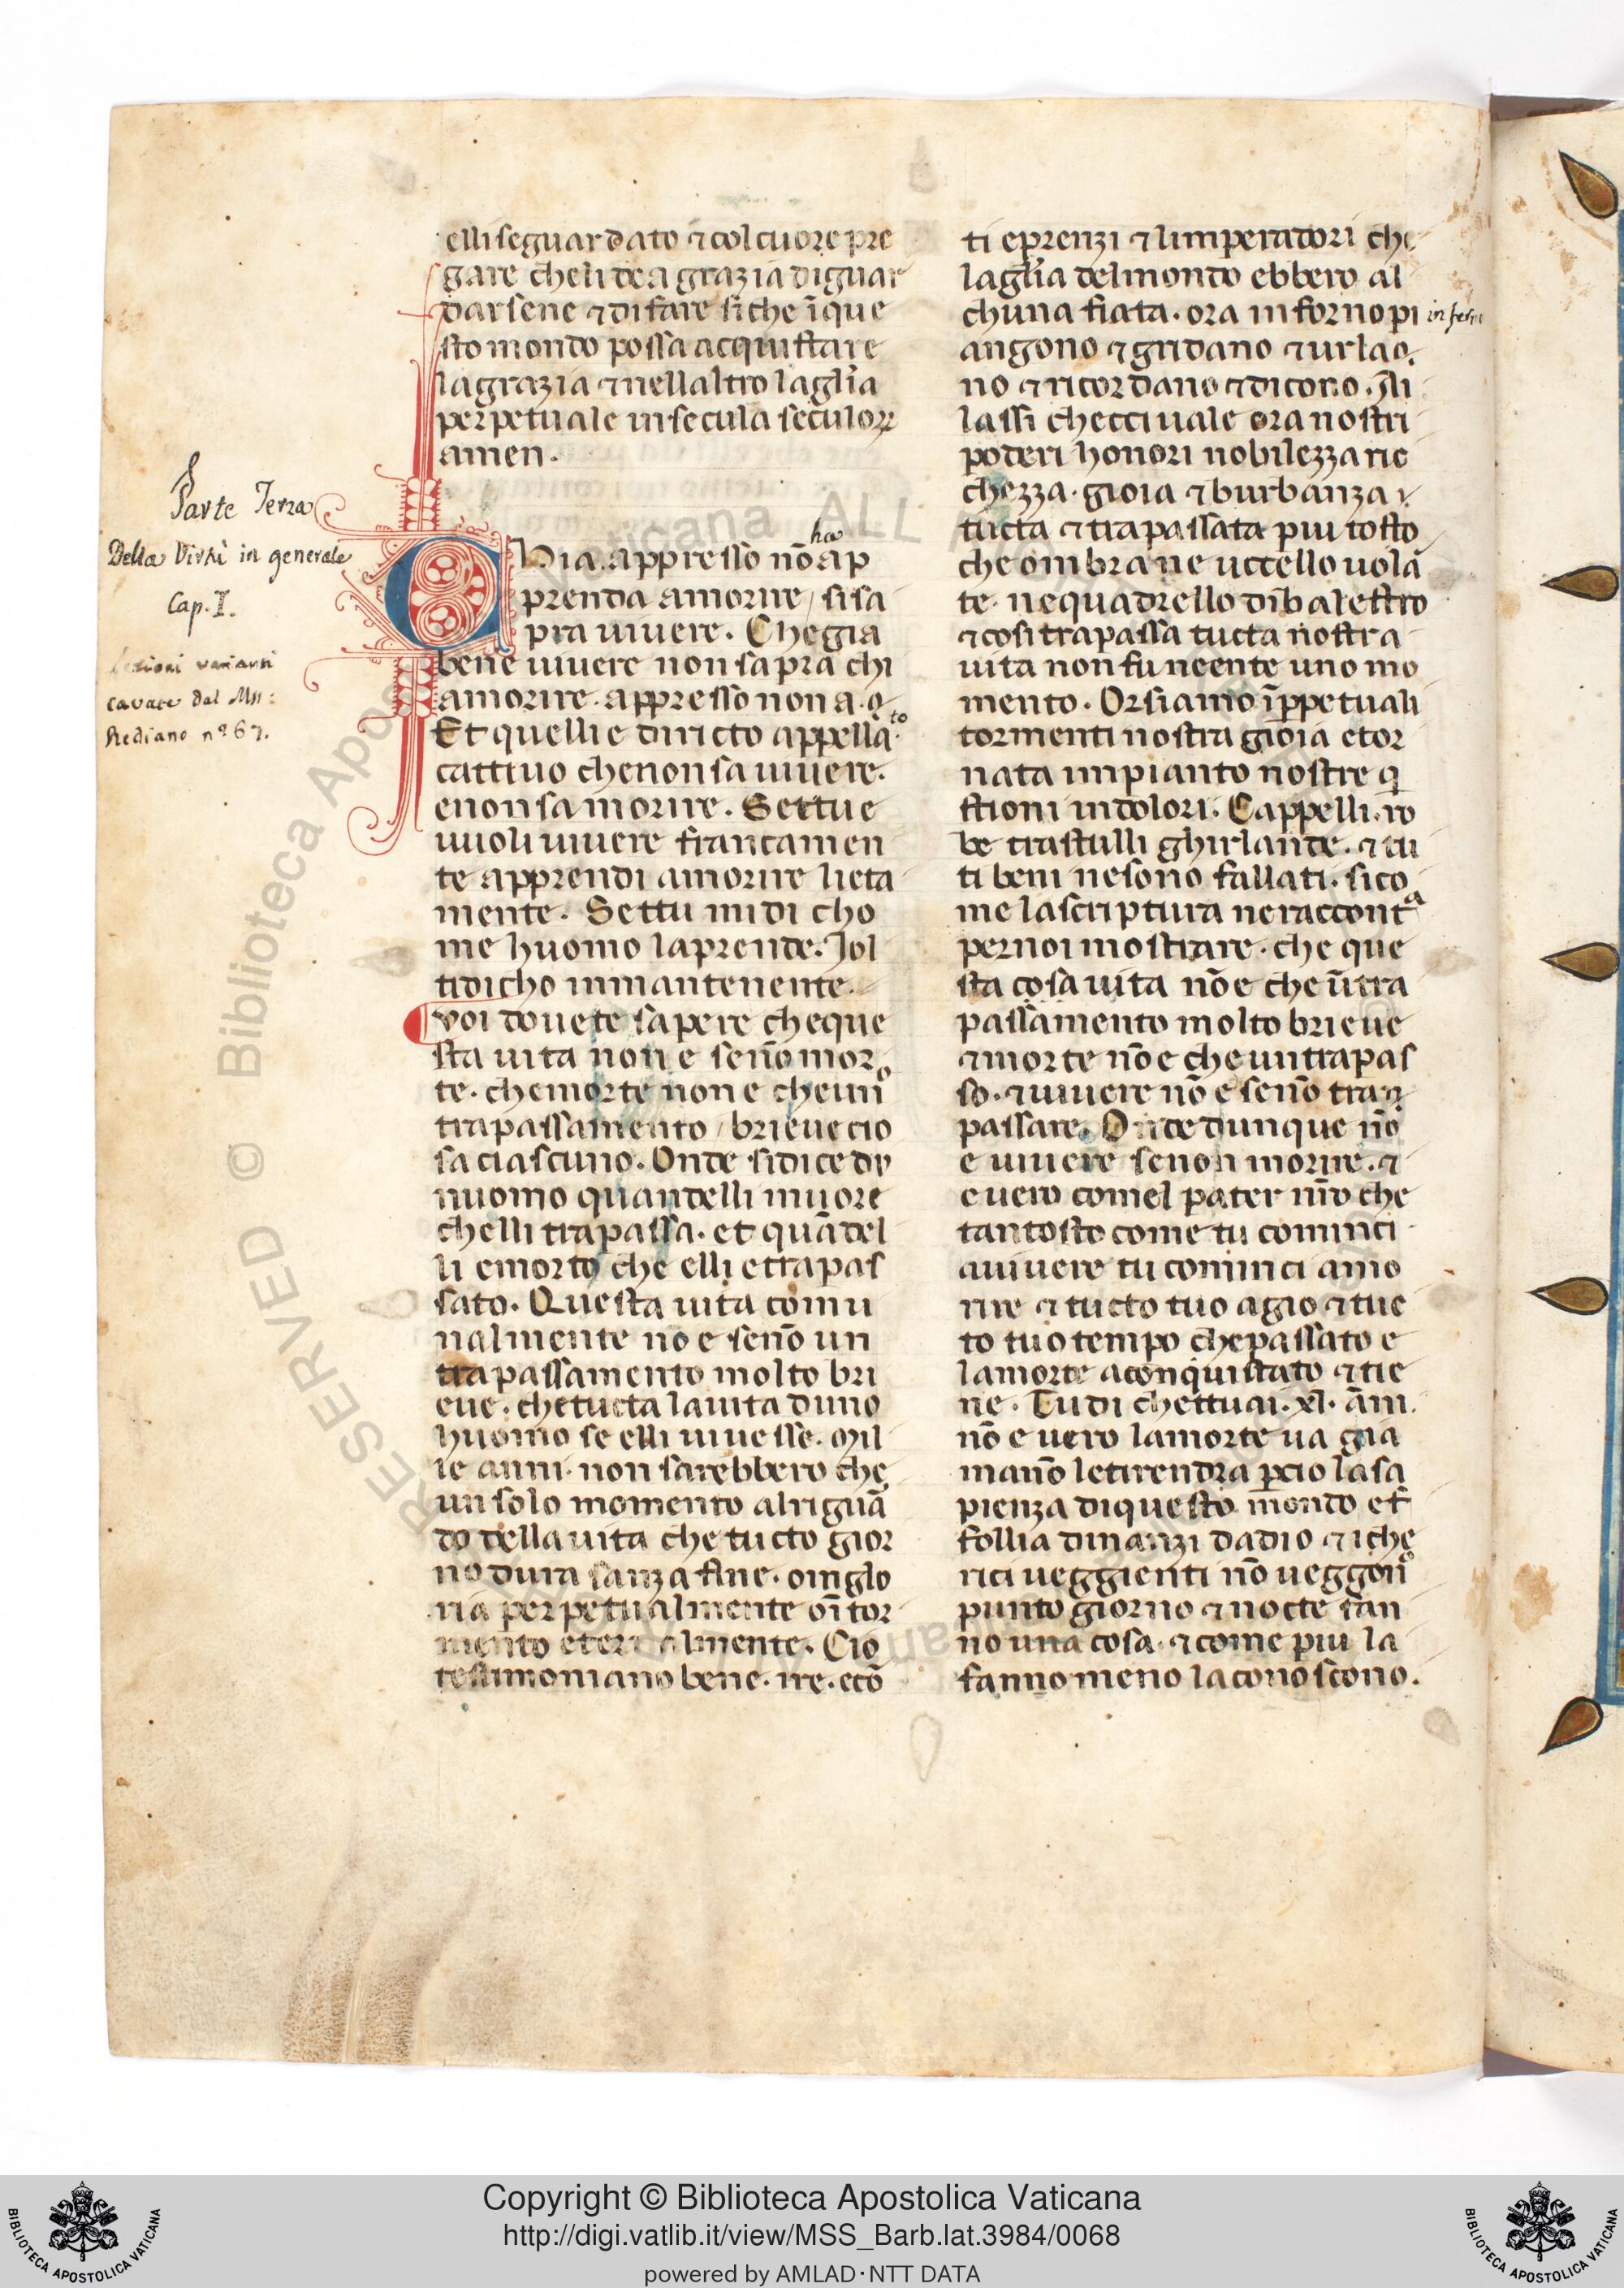 elli seguardato ⁊ col cuore pre
gare cheli dea grazia diguar
darsene ⁊ di fare si che ī que
sto mondo possa acquistare
la grazia ⁊ nellaltro la gl̄ia
perpetuale in secula seculoꝝ
amen.
Parte Terza
Della Virtù in generale
Cap. I.
Lezioni varianti
cavate dal Mss:
Rediano nº 67.
ha
Dia. appresso nō ap
prenda amorire / sisa
pra uiuere. Che gia
bene uiuere non sapra chi
amorire. appresso non a.
Et quelli e diricto appella.to
cattiuo che non sa uiuere.
e non sa morire. Settue
uuoli uiuere francamen
te apprendi amorire lieta
mente. Settu mi di cho
me huomo laprende. Jol
ti dicho inmantenente.
Voi douete sapere che que
sta uita non e senō mor
te. che morte non e che uno
trapassamento / brieue cio
sa ciascuno. Onde si dice du
nuomo quandelli muore
chelli trapassa. et quādel
li emorto che elli etrapas
sato. Questa uita comu
nalmente no e senō un
trapassamento molto bri
eue. che tucta lauita duno
huomo se elli uiuesse. Mil
le anni. non sarebbero che
un solo momento alriguā
do della uita che tucto gior
no dura sanza fine. oinglo
ria perpetualmente oī tor
mento eternalmente. Cio
testimoniano bene. ire. ecō
ti eprenzi ⁊ limperadori che
la gl̄ia delmondo ebbero al
chuna fiata. ora in forno pi
in ferno
angono ⁊ gridano ⁊ urlao
no ⁊ ricordano ⁊ dicono. Ai
lassi checci uale ora nostri
poderi honori nobilezza ric
chezza. gioia ⁊ burbanza
tucta ⁊ trapassata piu tosto
che ombra ne uccello uola
te. ne quadrello dibalestro
⁊ cosi trapassa tucta nostra
uita non fu neente uno mo
mento. Orsiamo īp̄petuali
tormenti nostra gioia etor
nata in pianto nostre q
stioni in dolori. Cappelli. ro
be trastulli ghirlande. ⁊ tu
ti beni nesono fallati. sico
me lascriptura neracconta
pernoi mostrare. che que
sta cosa uita nō e che ūtra
passamento molto brieue
⁊ morte nō e che untrapas
so. ⁊ uiuere nō e senō tra
passare. Onde dunque nō
e uiuere senon morire. ⁊
e uero comel pater nr̄o che
tantosto come tu cominci
auiuere tu cominci amo
rire ⁊ tucto tuo agio ⁊ tuc
to tuo tempo che passato e
lamorte aconquistato ⁊ tie
ne. Tu di chettuai. xl. āni.
nō e uero lamorte ua gia
mai nō le ti rendra p̄cio la sa
pienza di questo mondo et
follia dinanzi dadio ⁊ iche
rici ueggienti nō ueggono
punto giorno ⁊ nocte fan
no una cosa. ⁊ come piu la
fanno meno la conoscono.
Copyright © Biblioteca Apostolica Vaticana
http://digi.vatlib.it/view/MSS_Barb.lat.3984/0068
powered by AMLAD·NTT DATA
BIBLIOTECA APOSTOLICA VATICANA
BIBLIOTECA APOSTOLICA VATICANA